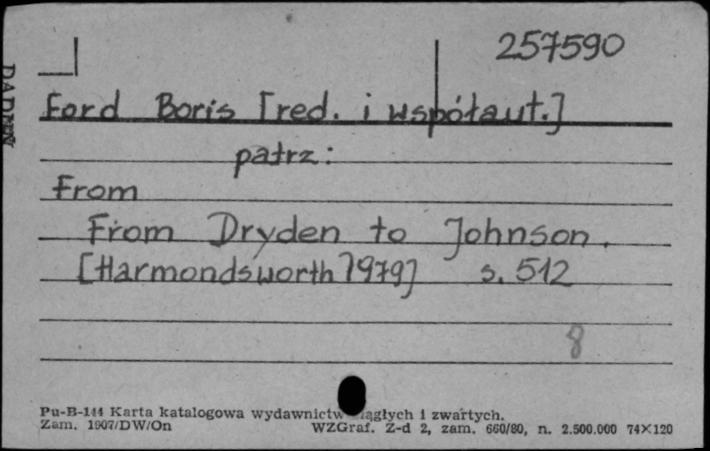 257590
Ford Boris [red. i współaut.]
patrz:
From
From Dryden to Johnson.
[Harmondsworth 1979] s. 512
8
Pu-B-144 Karta katalogowa wydawnictw ciągłych i zwartych.
Zam. 1907/DW/On WZGraf. Z-d 2, zam. 660/80, n. 2.500.000 74×120